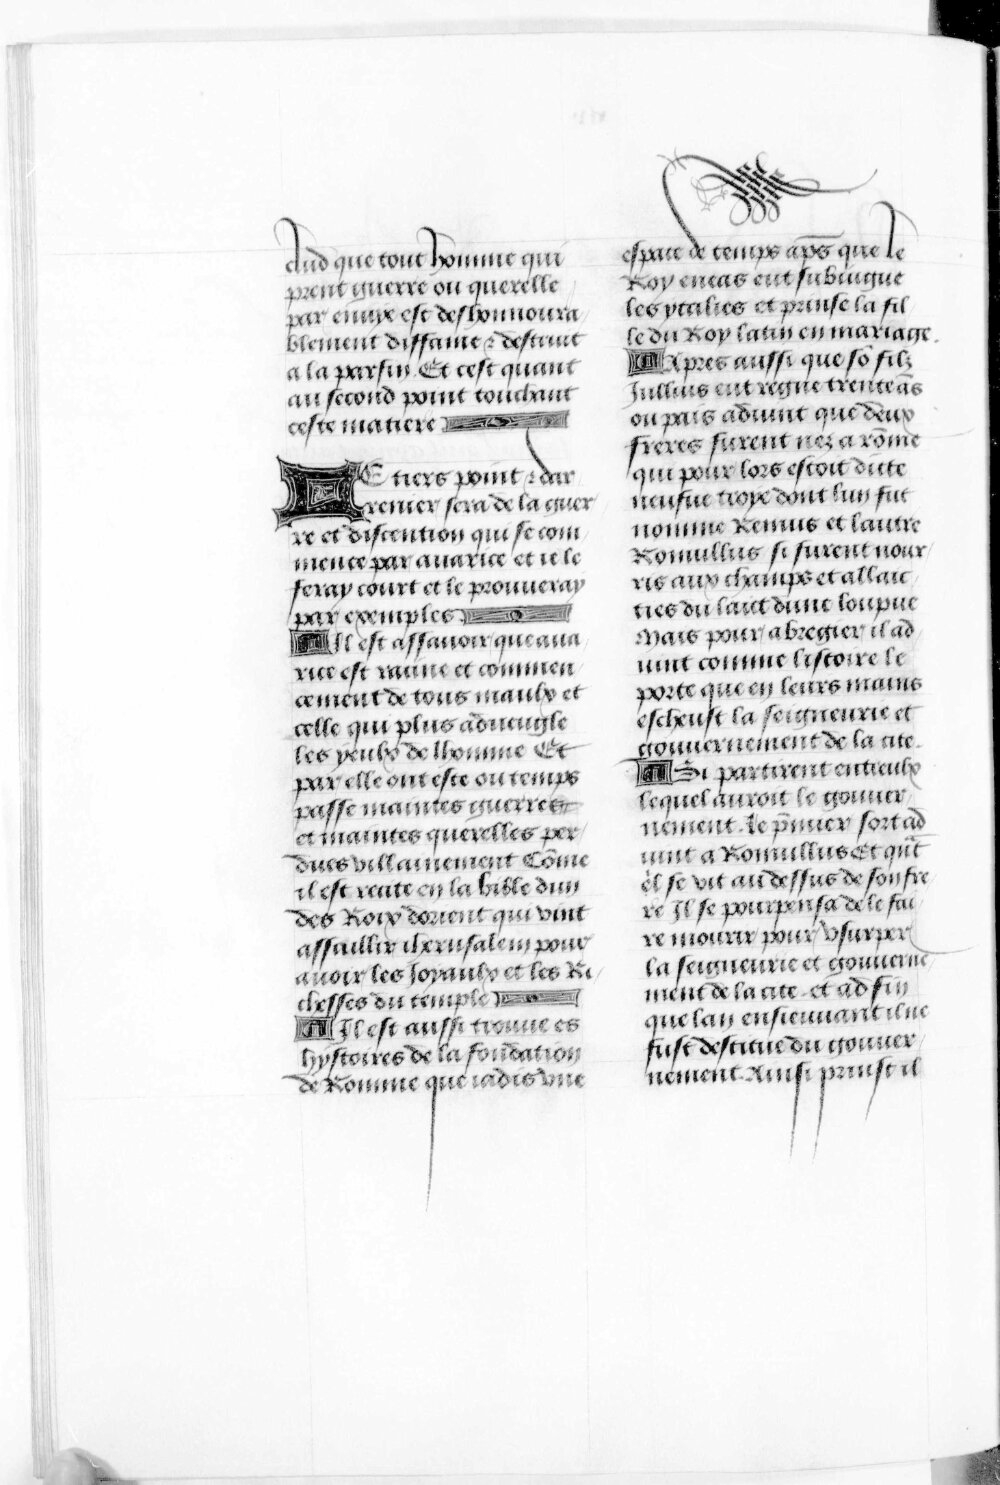 Aud que tout homme qui
prent guerre ou querelle
par enuye est deshonnoura
blement diffame ⁊ destruit
a la parfin. Et cest quant
au second point touchant
ceste matiere
LE tiers point ⁊ dar
renier sera de la guer
re et discention qui se com
mence par auarice et ie le
feray court et le prouueray
par exemples
Il est assauoir que aua
rice est racine et commen
cement de tous maulx et
celle qui plus adueugle
les yeulx de lhomme Et
par elle ont este ou temps
passe maintes guerres
et maintes querelles per
dues villainement Cõme
il est recite en la bible dun
des Roix dorient qui vint
assaillir iherusalem pour
auoir les Joyaulx et les Ri
chesses du temple
Il est aussi trouue es
hystoires de la fondation
de Romme que iadis vne
espace de temps apṡ que le
Roy eneas eut subiugue
les ytalies et prinse la fil
le du Roy latin en mariage.
Apres aussi que sõ filz
Jullius eut regne trente ãs
ou pais aduint que deux
freres furent nez a rõme
qui pour lors estoit dicte
neufue troye dont lun fut
nomme Remus et lautre
Romullus si furent nour
ris aux champs et allaic
ties du laict dune loupue
Mais pour abregier il ad
uint comme listoire le
porte que en leurs mains
escheust la seigneurie et
gouuernement de la cite.
Si partirent entreulx
lequel auroit le gouuer
nement. Le p̃mier sort ad
uint a Romullus Et qũt
il se vit au dessus de son fre
re Il se pourpensa de le fai
re mourir pour vsurper
la seigneurie et gouuerne
ment de la cite. et ad fin
que lan ensieuuant il ne
fust destitue du gouuer
nement. Ainsi prinst il